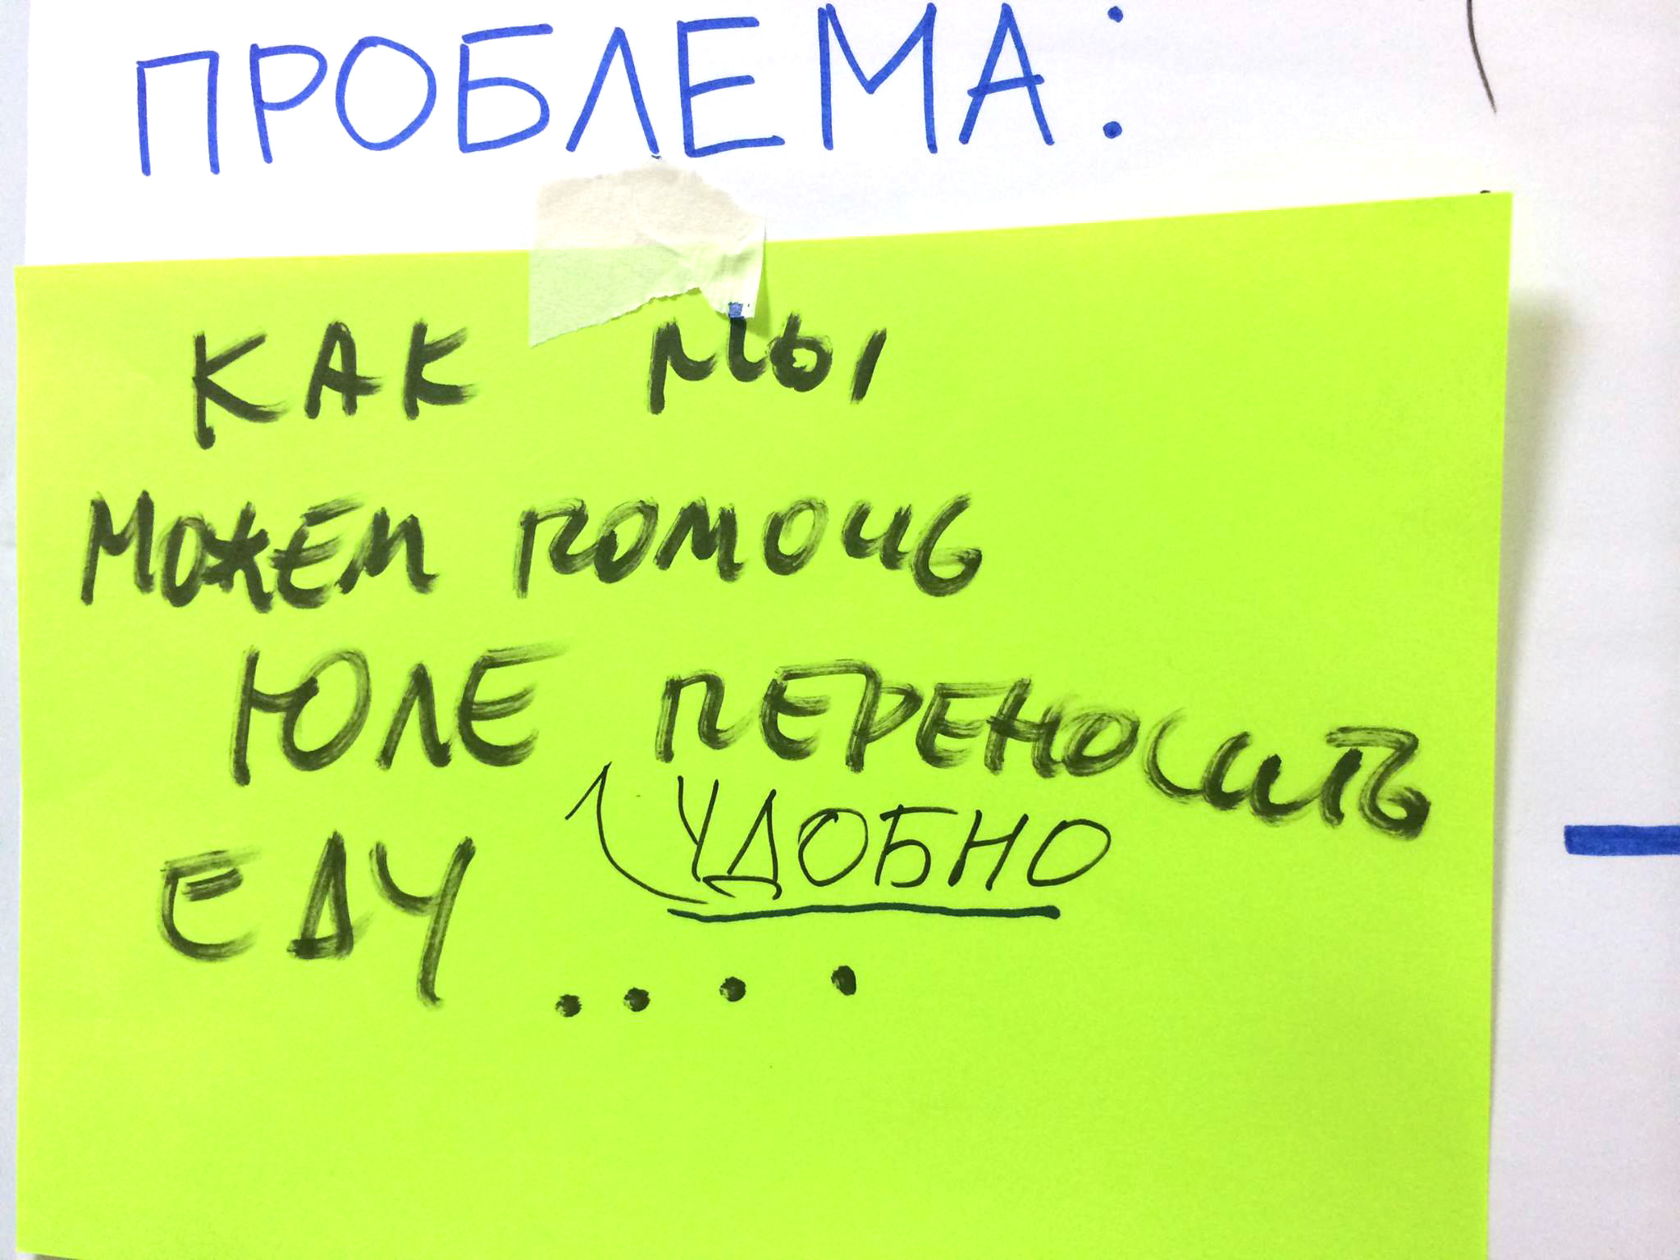 ПРОБЛЕМА:
КАК МЫ
МОЖЕМ ПОМОЧЬ
ЮЛЕ ПЕРЕНОСИТЬ
УДОБНО
ЕДУ ....